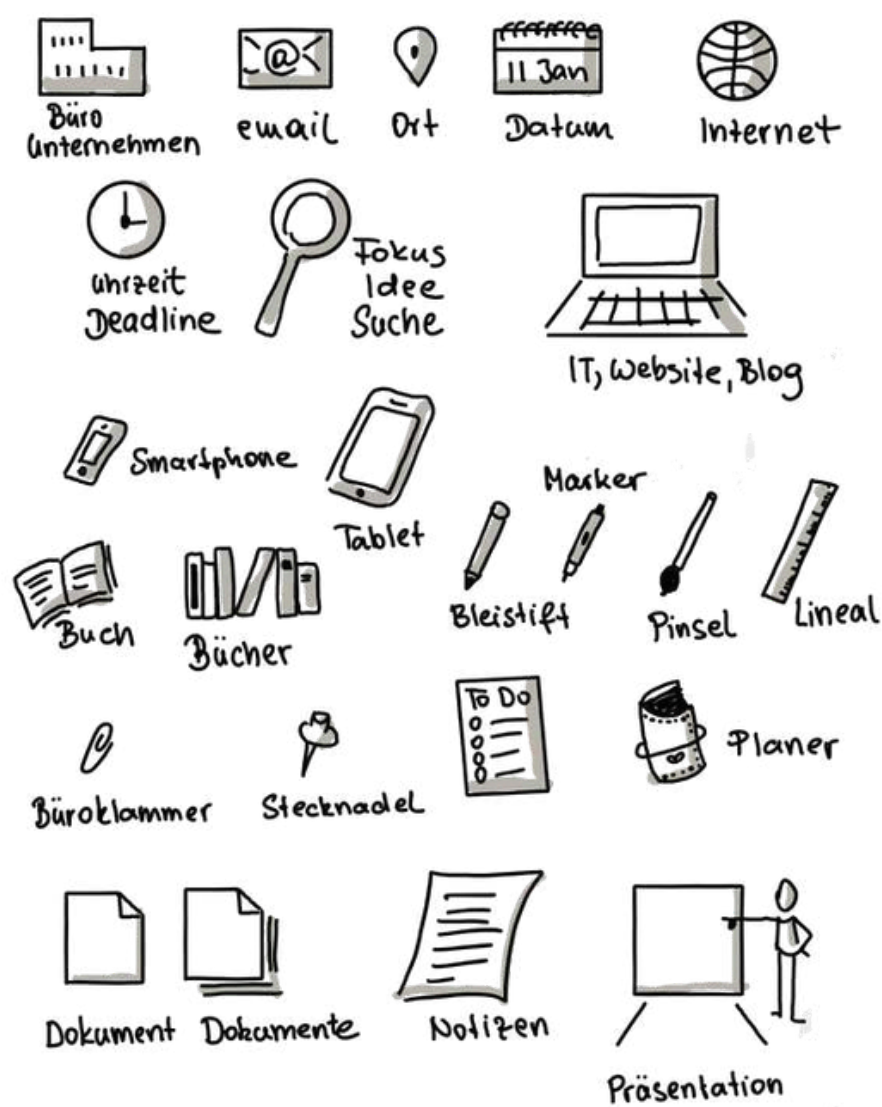 @
11 Jan
Büro
Unternehmen
email
Ort
Datum
Internet
Uhrzeit
Deadline
Fokus
Idee
Suche
IT, Website, Blog
Smartphone
Tablet
Marker
Buch
Bücher
Bleistift
Pinsel
Lineal
To Do
Planer
Büroklammer
Stecknadel
Dokument
Dokumente
Notizen
Präsentation